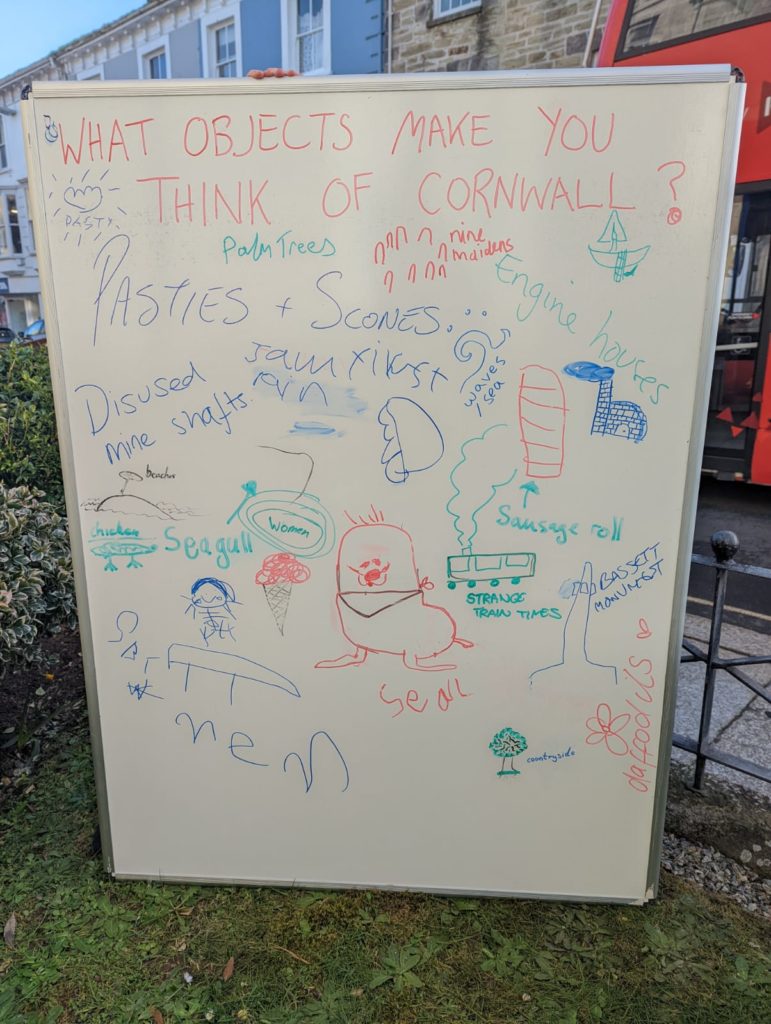 WHAT OBJECTS MAKE YOU
THINK OF CORNWALL?
PASTY
Palm Trees
nine
maidens
Engine houses
PASTIES + SCONES.
Jam first
waves
/sea
rain
Disused
mine shafts
beaches
chicken
Seagull
Women
Sausage roll
STRANGE
TRAIN TIMES
BASSETT
MONUMENT
SeaL
daffodils
countryside